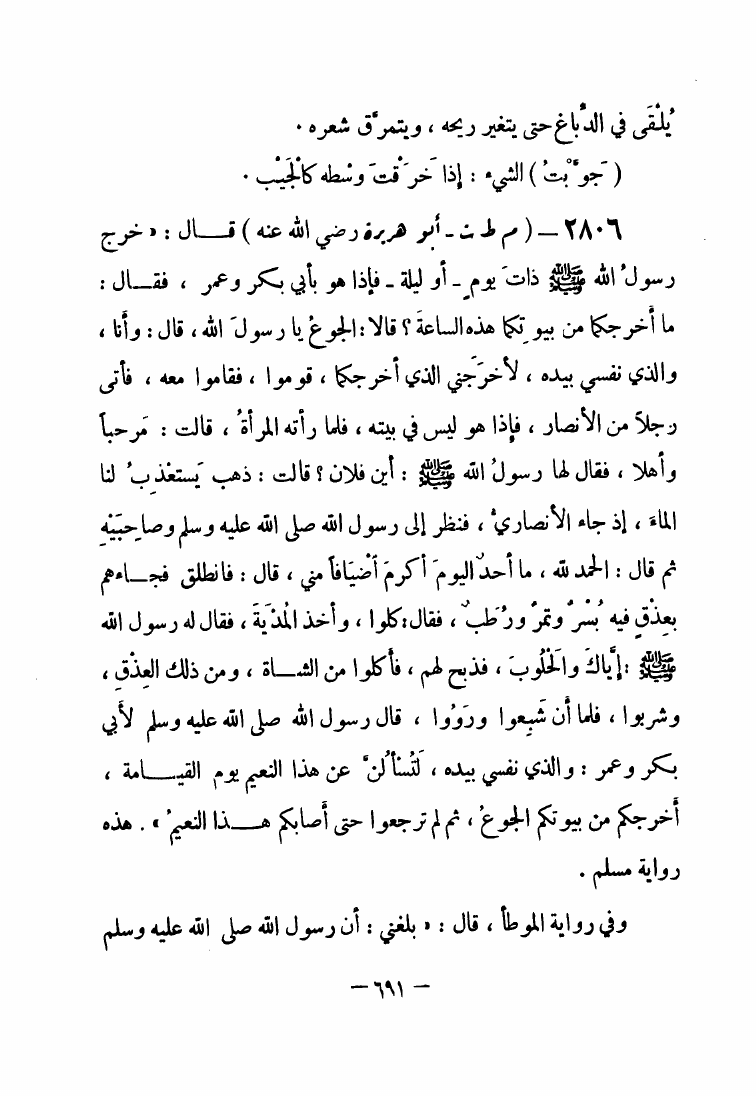 يُلْقَى في الدِّباغ حتى يتغير ريحه ، ويتمرَّق شعره .
( جَوَّبْتُ ) الشيء : إذا خَرَقْتَ وسْطه كالْجَيْب .
٢٨٠٦ – ( م ط ت - أبو هريرة رضي الله عنه ) قـال : « خرج
رسولُ الله ﷺ ذاتَ يومٍ - أو ليلة - فإذا هو بأبي بكر وعمر ، فقـال :
ما أخرجكما من بيوتِكما هذه الساعةَ ؟ قالا : الجوعُ يا رسولَ الله ، قال : وأنا ،
والذي نفسي بيده ، لأخرَجَني الذي أخرجكما ، قوموا ، فقاموا معه ، فأتى
رجلاً من الأنصار ، فإذا هو ليس في بيته ، فلما رأته المرأةُ ، قالت : مَرحباً
وأهلا ، فقال لها رسولُ الله ﷺ : أين فلان ؟ قالت : ذهب يَستعْذِبُ لنا
الماءَ ، إذ جاء الأنصاريُّ ، فنظر إلى رسول الله صلى الله عليه وسلم وصاحِبَيْهِ
ثم قال : الحمد لله ، ما أحدٌ اليومَ أكرمَ أضْيَافاً مني ، قال : فانطلق فجـاءهم
بعِذْقٍ فيه بُسْرٌ وتمرٌ ورُطَبٌ ، فقال : كلوا ، وأخذ الْمُدْيَةَ ، فقال له رسول الله
ﷺ : إيَّاكَ والْحَلُوبَ ، فذبح لهم ، فأكلوا من الشـاة ، ومن ذلك العِذْقِ ،
وشربوا ، فلما أن شَبِعوا ورَوُوا ، قال رسول الله صلى الله عليه وسلم لأبي
بكر وعمر : والذي نفسي بيده ، لَتُسْألُنَّ عن هذا النعيم يوم القيـامة ،
أخرجكم من بيوتكم الجوعُ ، ثم لم ترجعوا حتى أصابكم هـذا النعيمُ » . هذه
رواية مسلم .
وفي رواية الموطأ ، قال : « بلغني : أن رسول الله صلى الله عليه وسلم
– ٦٩١ –